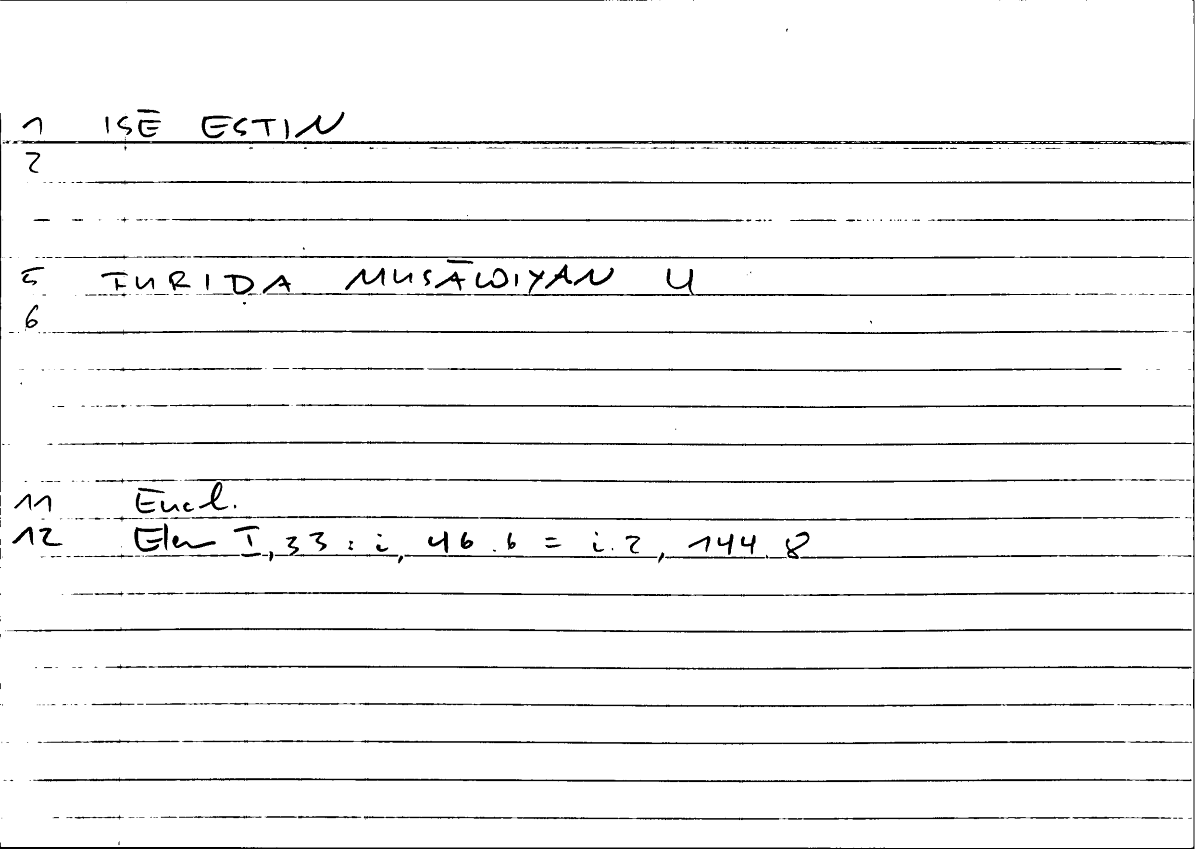 1 ISĒ ESTIN
2
5 FURIḌA MUSĀWIYAN U
6
11 Eucl.
12 Elem I,33 : i, 46.6 = i.2, 144.8